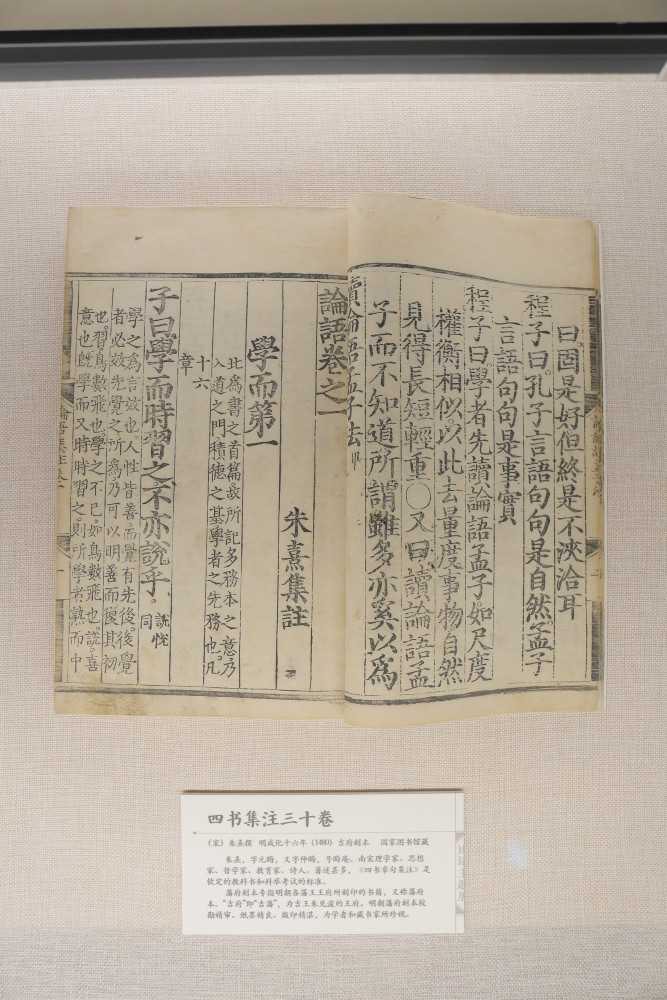 曰固是好但終是不浹洽耳
程子曰孔子言語句句是自然孟子
言語句句是事實
程子曰學者先讀論語孟子如尺度
權衡相似以此去量度事物自然
見得長短輕重○又曰讀論語孟
子而不知道所謂雖多亦奚以為
讀論語孟子法
論語卷之一
朱熹集註
學而第一
此為書之首篇故所記多務本之意乃
入道之門積德之基學者之先務也凡
十六
章
子曰學而時習之不亦說乎
說悅
同
學之為言效也人性皆善而覺有先後後覺
者必效先覺之所為乃可以明善而復其初
也習鳥數飛也學之不已如鳥數飛也說喜
意也既學而又時時習之則所學者熟而中
論語集註卷一
四书集注三十卷
（宋）朱熹撰 明成化十六年（1480）吉府刻本 国家图书馆藏
朱熹，字元晦，又字仲晦，号晦庵、南宋理学家、思想
家、哲学家、教育家、诗人。著述甚多，《四书章句集注》是
钦定的教科书和科举考试的标准。
藩府刻本专指明朝各藩王王府所刻印的书籍，又称藩府
本。“吉府”即“吉藩”，为吉王朱见浚的王府、明朝藩府刻本校
勘精审、纸墨精良、版印精湛，为学者和藏书家所珍视。